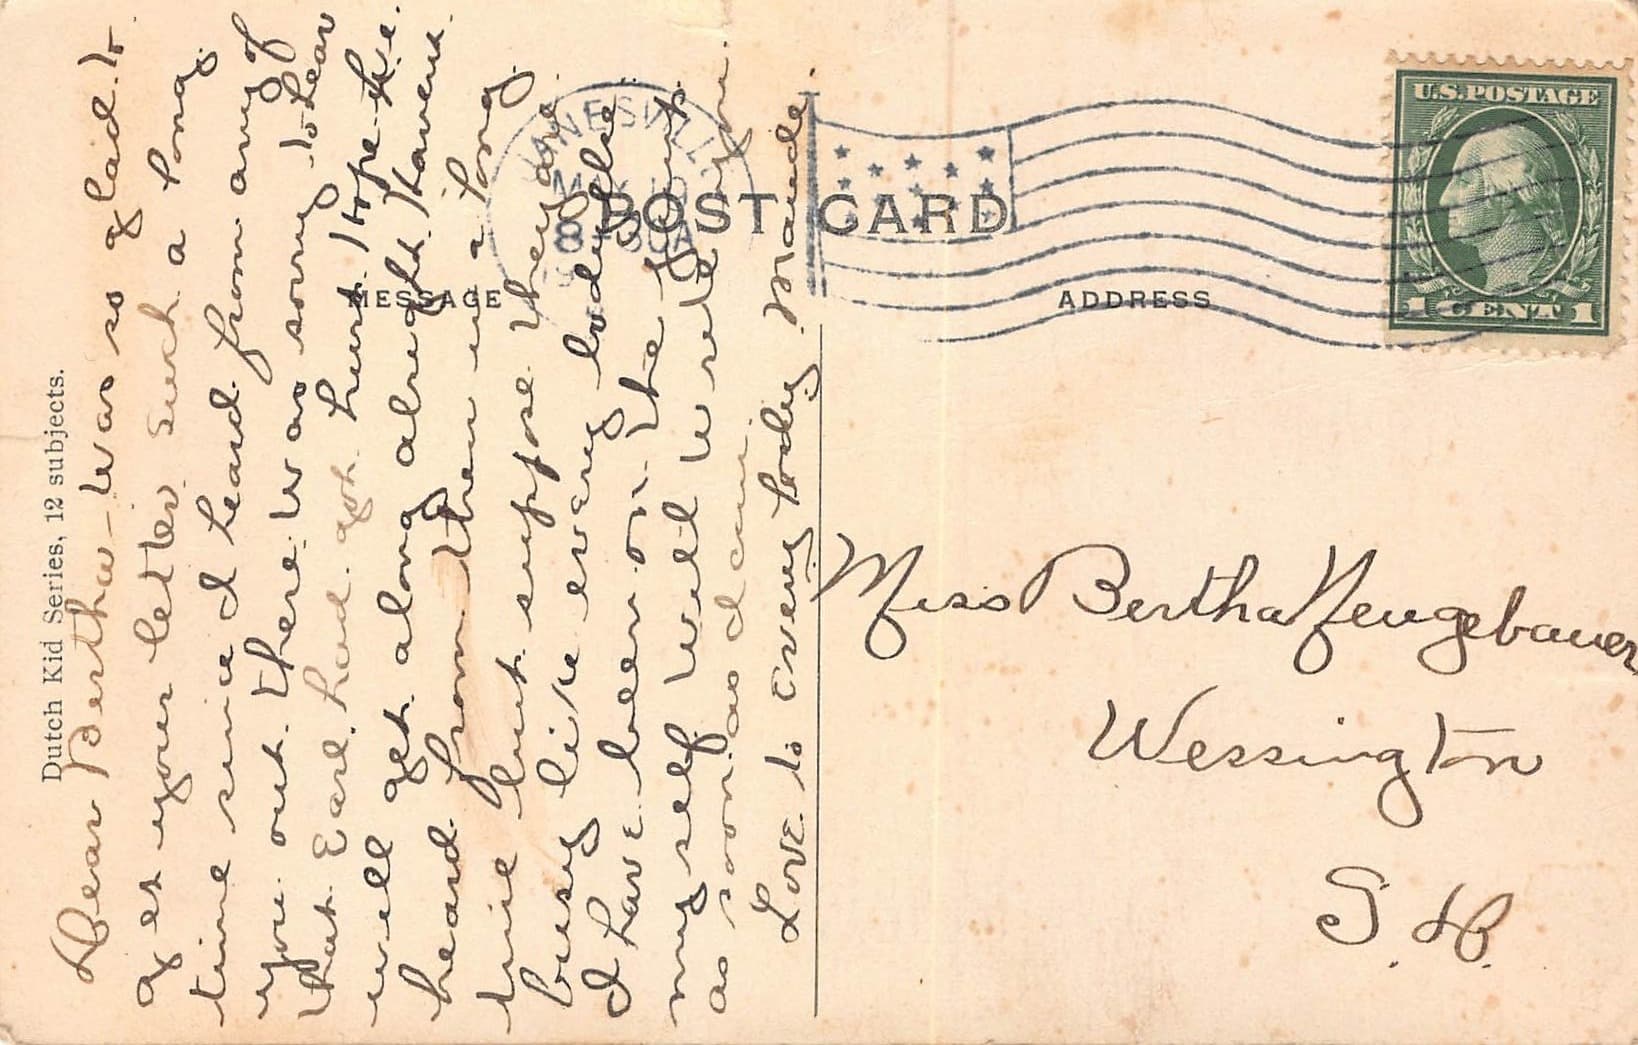 Dutch Kid Series, 12 subjects.
Dear Bertha - Was so glad to
get your letter such a long
time since I heard from any of
you out there. Was sorry to hear
that Earl had got hurt. Hope he
will get along alright. Havent
heard from them in a long
time but suppose they are
busy like every body else
I have been on the jump
my self. Well will write you
as soon as I can.
Love to every body. Maude.
POST CARD
MESSAGE
ADDRESS
U.S. POSTAGE
1 CENT 1
JANESVILLE
8 30 A
Miss Bertha Neugebauer
Wessington
S. D.